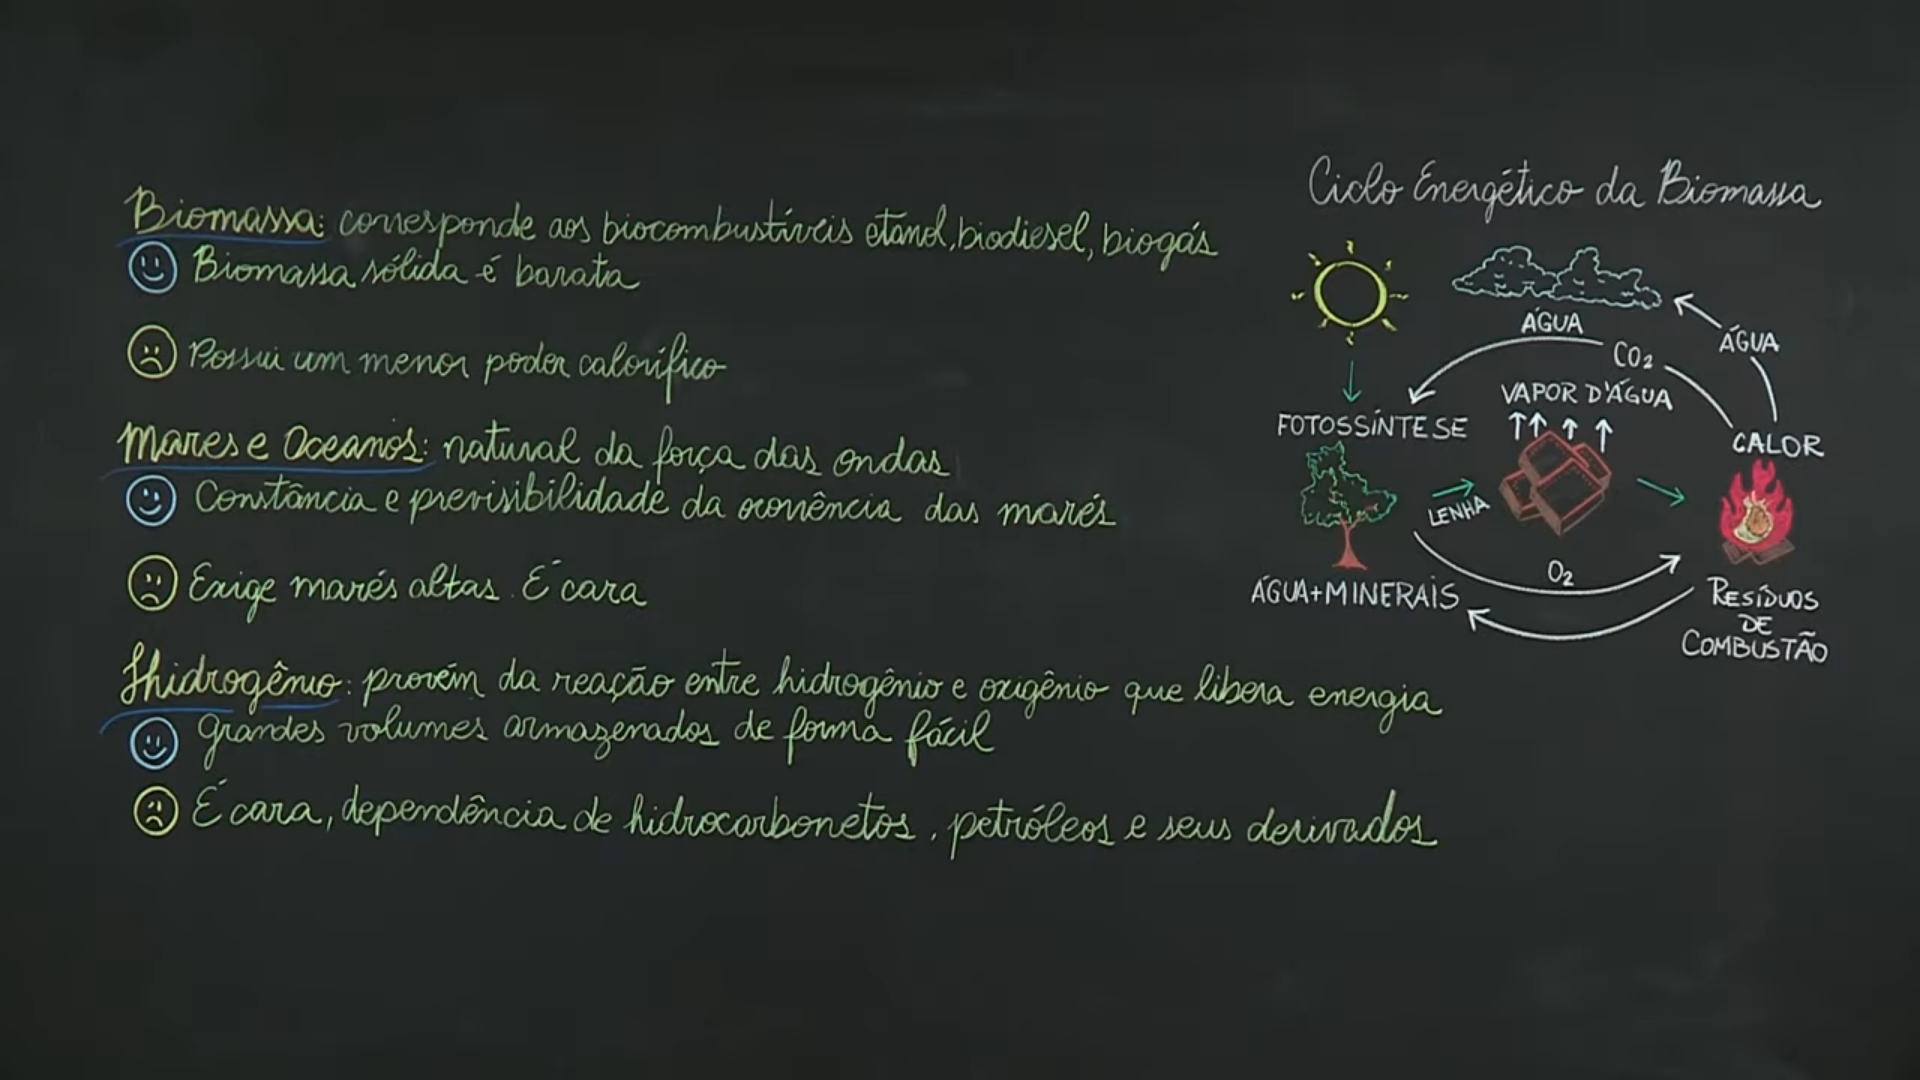 Biomassa: corresponde aos biocombustíveis etanol, biodiesel, biogás
Biomassa sólida é barata
Possui um menor poder calorífico
Mares e Oceanos: natural da força das ondas
Constância e previsibilidade da ocorrência das marés
Exige marés altas. É cara
Hidrogênio: provém da reação entre hidrogênio e oxigênio que libera energia
grandes volumes armazenados de forma fácil
É cara, dependência de hidrocarbonetos, petróleos e seus derivados
Ciclo Energético da Biomassa
ÁGUA
ÁGUA
CO2
VAPOR D'ÁGUA
FOTOSSÍNTESE
CALOR
LENHA
O2
ÁGUA+MINERAIS
RESÍDUOS
DE
COMBUSTÃO